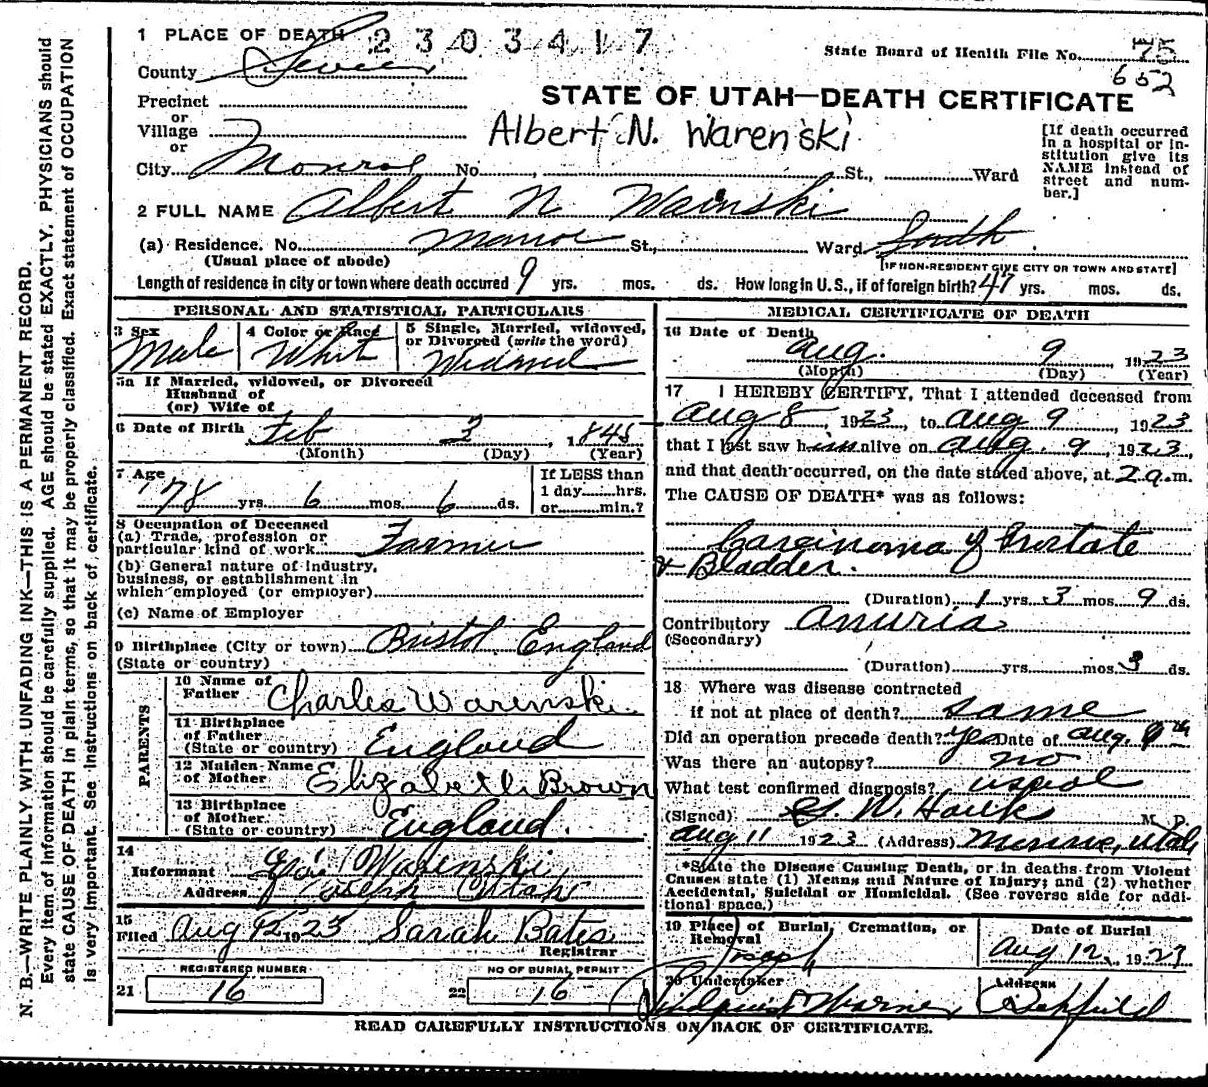 1 PLACE OF DEATH 2303417
State Board of Health File No. 75
652
County Sevier
Precinct
or
Village
or
City Monroe No. , St., Ward
STATE OF UTAH—DEATH CERTIFICATE
Albert N. Warenski
[If death occurred
in a hospital or in-
stitution give its
NAME instead of
street and num-
ber.]
2 FULL NAME Albert N Wainski
(a) Residence. No. Monroe St., Ward South
(Usual place of abode) [IF NON-RESIDENT GIVE CITY OR TOWN AND STATE]
Length of residence in city or town where death occured 9 yrs. mos. ds. How long in U. S., if of foreign birth? 47 yrs. mos. ds.
PERSONAL AND STATISTICAL PARTICULARS
3 Sex Male
4 Color or Race Whit
5 Single, Married, widowed,
or Divorced (write the word)
Widowed
5a If Married, widowed, or Divorced
Husband of
(or) Wife of
6 Date of Birth Feb 3, 1845
(Month) (Day) (Year)
7 Age 78 yrs. 6 mos. 6 ds.
If LESS than
1 day hrs.
or min.?
8 Occupation of Deceased
(a) Trade, profession or
particular kind of work Farmer
(b) General nature of industry,
business, or establishment in
which employed (or employer)
(c) Name of Employer
9 Birthplace (City or town) Bristol England
(State or country)
PARENTS
10 Name of
Father Charles Warenski
11 Birthplace
of Father
(State or country) England
12 Maiden Name
of Mother Elizabeth Brown
13 Birthplace
of Mother
(State or country) England.
14
Informant Warenski
Address Joseph Utah
15
Filed Aug 12 1923 Sarah Bates
Registrar
REGISTERED NUMBER
21 16
NO OF BURIAL PERMIT
22 16
MEDICAL CERTIFICATE OF DEATH
16 Date of Death
Aug. 9 1923
(Month) (Day) (Year)
17 I HEREBY CERTIFY, That I attended deceased from
Aug 8, 1923, to Aug 9, 1923
that I last saw him alive on Aug. 9, 1923,
and that death occurred, on the date stated above, at 2 a.m.
The CAUSE OF DEATH* was as follows:
Carcinoma of Prostate
& Bladder.
(Duration) 1 yrs. 3 mos 9 ds.
Contributory Anuria
(Secondary)
(Duration) yrs. mos. 3 ds.
18 Where was disease contracted
if not at place of death? same
Did an operation precede death? yes Date of Aug. 9th
Was there an autopsy? no
What test confirmed diagnosis? usual
(Signed) W. Hauks M. D.
Aug 11 1923 (Address) Monroe, Utah
*State the Disease Causing Death, or in deaths from Violent
Causes state (1) Means and Nature of Injury; and (2) whether
Accidental, Suicidal or Homicidal. (See reverse side for addi-
tional space.)
19 Place of Burial, Cremation, or
Removal Joseph
Date of Burial
Aug 12, 1923
20 Undertaker
Warner
Address
Richfield
READ CAREFULLY INSTRUCTIONS ON BACK OF CERTIFICATE.
N. B.—WRITE PLAINLY WITH UNFADING INK—THIS IS A PERMANENT RECORD.
Every item of information should be carefully supplied. AGE should be stated EXACTLY. PHYSICIANS should
state CAUSE OF DEATH in plain terms, so that it may be properly classified. Exact statement of OCCUPATION
is very important. See instructions on back of certificate.